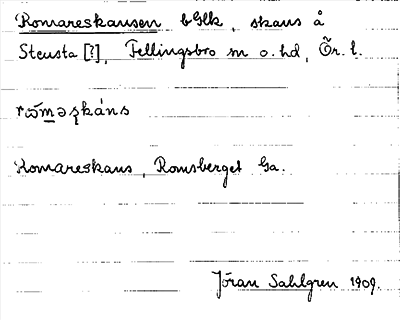 Romareskansen bGlk, skans å
Stensta [?], Fellingsbro sn o. hd, Ör. l.
Romareskans, Romsberget Ga.
Jöran Sahlgren 1909.